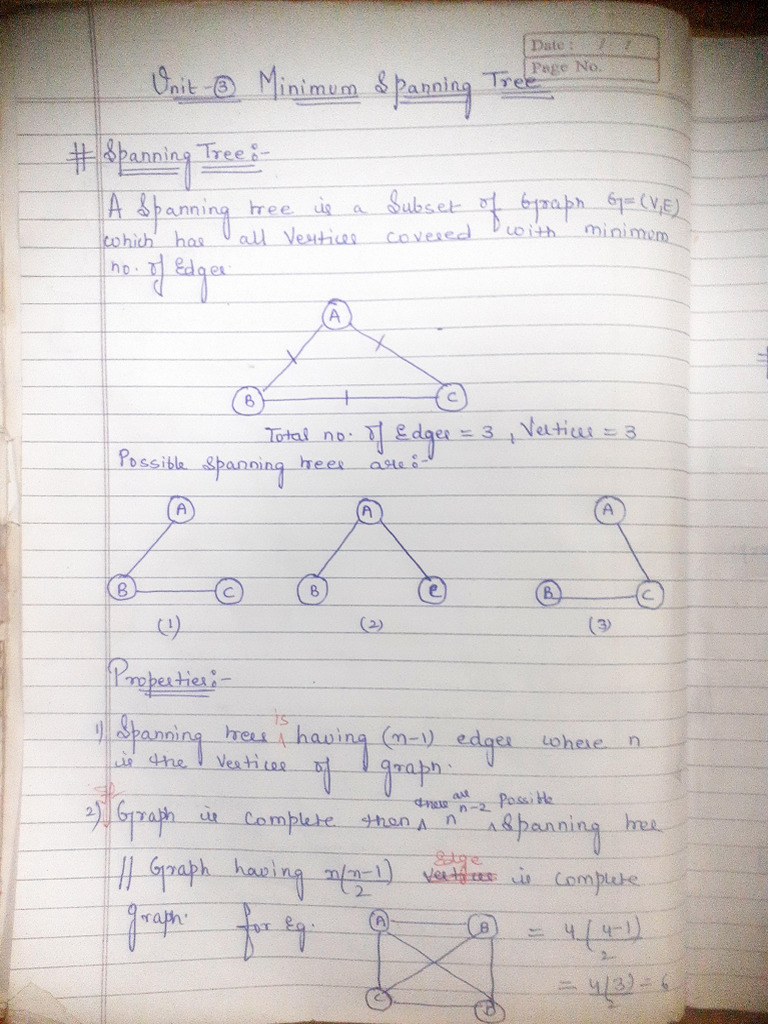 Date : / /
Page No.
Unit-③ Minimum Spanning Tree
# Spanning Tree:-
A Spanning tree is a Subset of Graph G=(V,E)
which has all Vertices covered with minimum
no. of Edges.
A
B C
Total no. of Edges = 3 , Vertices = 3
Possible Spanning trees are:-
A A A
B C B C B C
(1) (2) (3)
Properties:-
is
1) Spanning trees ^ having (n-1) edges where n
is the vertices of graph.
If there are n-2 Possible
2) Graph is complete then ^ n ^ Spanning tree
// Graph having n(n-1)/2 vertices Edge is complete
graph. for Eg. A B = 4(4-1)/2
C D = 4(3)/2 = 6